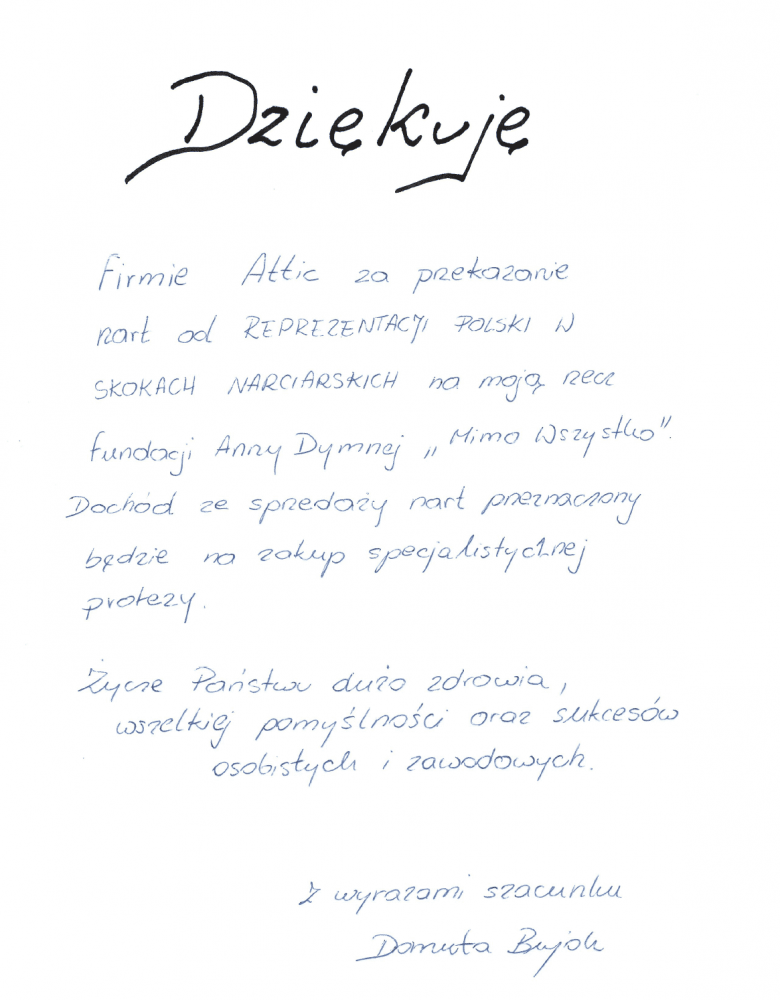 Dziękuję
firmie Attic za przekazanie
nart od REPREZENTACJI POLSKI W
SKOKACH NARCIARSKICH na moją rzecz
fundacji Anny Dymnej „Mimo Wszystko".
Dochód ze sprzedaży nart przeznaczony
będzie na zakup specjalistycznej
protezy.
Życzę Państwu dużo zdrowia,
wszelkiej pomyślności oraz sukcesów
osobistych i zawodowych.
Z wyrazami szacunku
Danuta Bujok